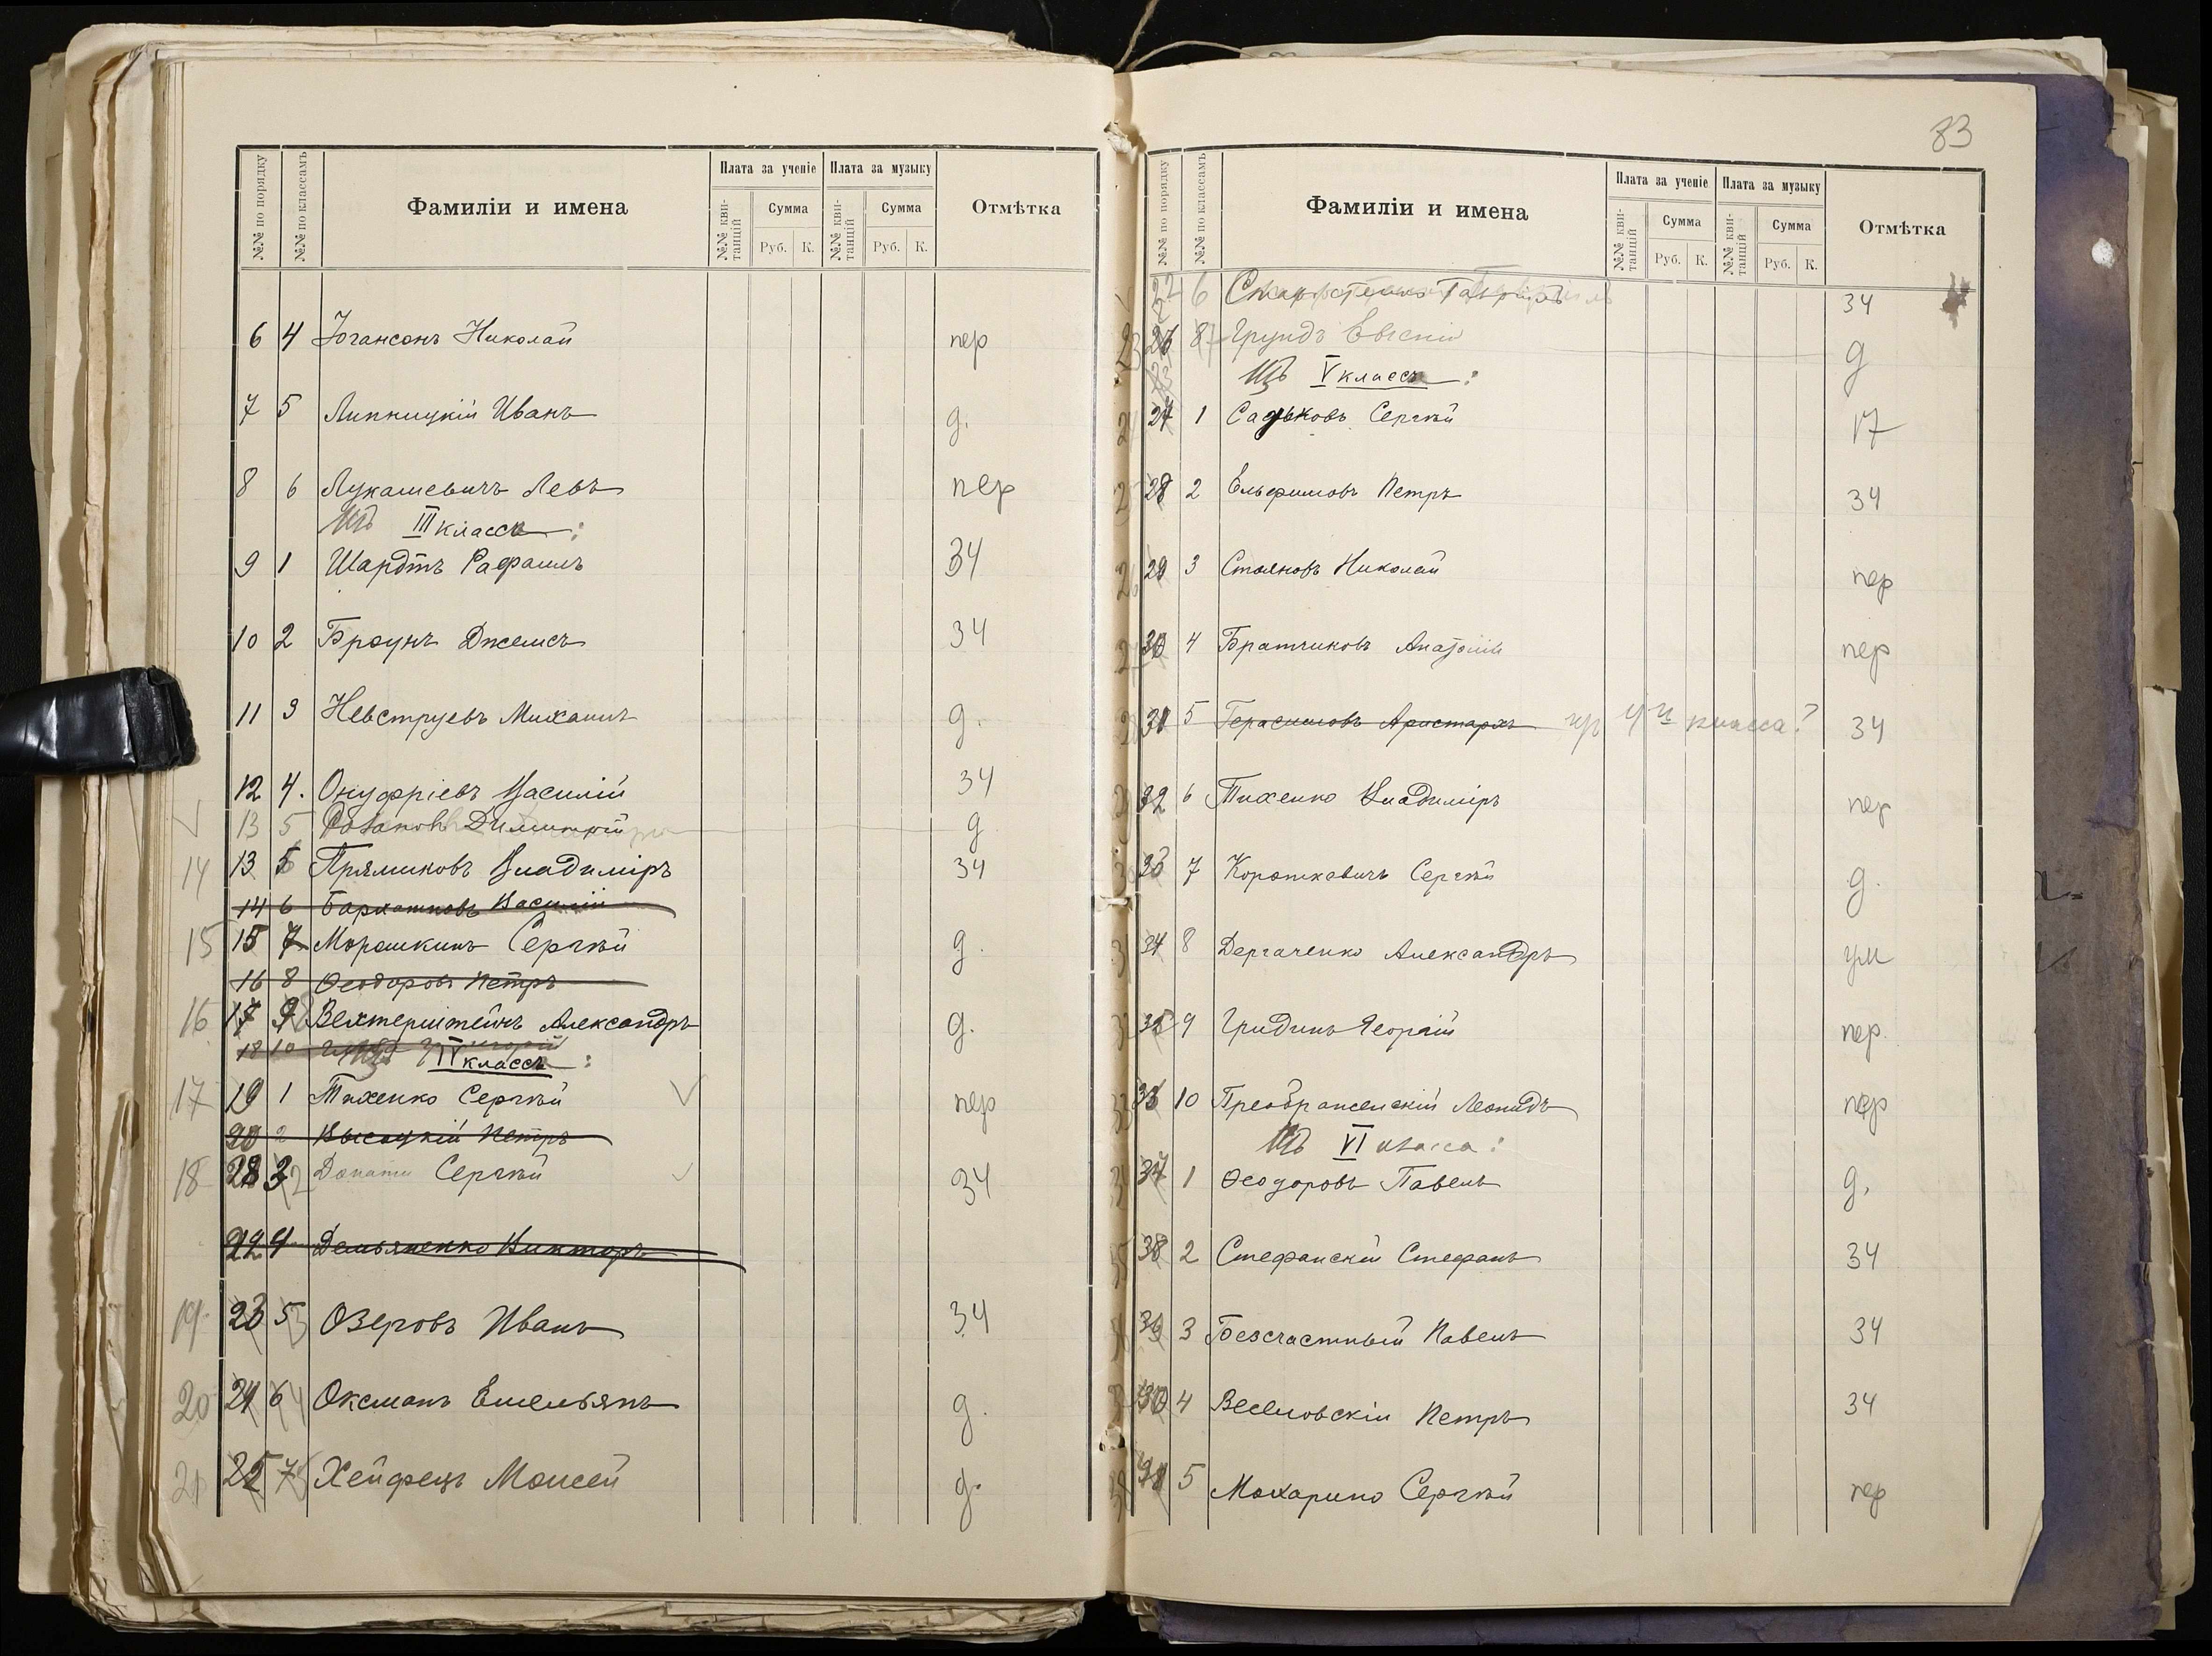 83
№№ по порядку №№ по классамъ Фамиліи и имена Плата за ученіе Плата за музыку Отмѣтка
№№ квитанцій Сумма №№ квитанцій Сумма
Руб. К. Руб. К.
6 4 Югансонъ Николай пер
7 5 Липницкій Иванъ д.
8 6 Лукашевичъ Левъ пер
Изъ III класса:
9 1 Шардтъ Рафаилъ 34
10 2 Броунъ Джемсъ 34
11 3 Невструевъ Михаилъ д.
12 4. Онуфріевъ Василій 34
13 5 Димитрій д
14 13 5 Прямиковъ Владиміръ 34
14 6 Бархатковъ Василій
15 15 7 Морошкинъ Сергѣй д.
16 8 Ѳеодоровъ Петръ
16 17 9 Вехтерштейнъ Александръ д.
18 10
IV класса:
17 19 1 Тихенко Сергѣй пер
20 2 Высоцкій Петръ
18 3 2 Донати Сергѣй 34
22 4 Демьяненко Викторъ
19 23 5 3 Озеровъ Иванъ 34
20 24 6 4 Оксманъ Емельянъ д.
21 25 7 5 Хейфецъ Моисей д.
№№ по порядку №№ по классамъ Фамиліи и имена Плата за ученіе Плата за музыку Отмѣтка
№№ квитанцій Сумма №№ квитанцій Сумма
Руб. К. Руб. К.
22 6 34
23 26 Грундъ д
Изъ V класса:
27 1 Садьковъ Сергѣй 17
28 2 Ельфимовъ Петръ 34
29 3 Стояновъ Николай пер
30 4 Братчиковъ Анатолій пер
31 5 Герасимовъ Аристархъ класса? 34
32 6 Тихенко Владиміръ пер
33 7 Короткевичъ Сергѣй д.
34 8 Дергаченко Александръ ум
35 9 Гридинъ Георгій пер.
36 10 Преображенскій Леонидъ пер
Изъ VI класса:
37 1 Ѳеодоровъ Павелъ д.
38 2 Стефанскій Стефанъ 34
39 3 Безсчастный Павелъ 34
4 Веселовскій Петръ 34
5 Махарино Сергѣй пер